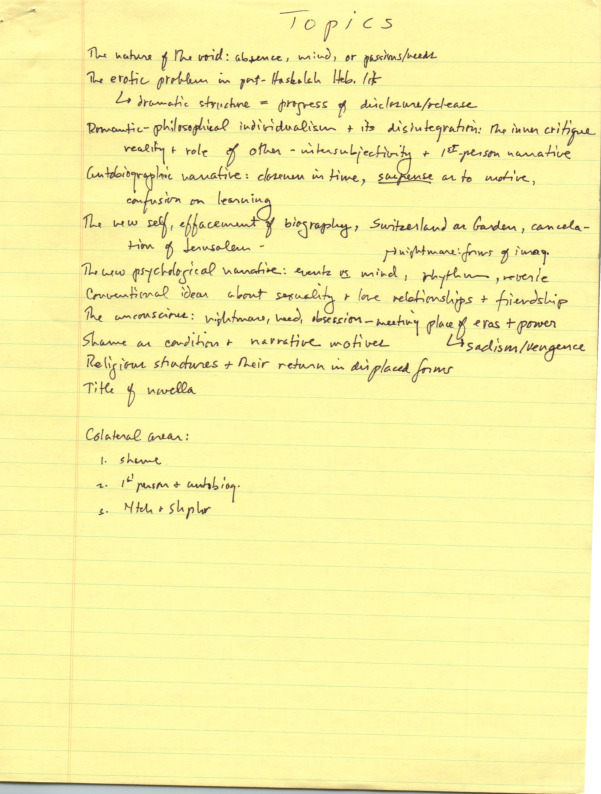 Topics
The nature of the void: absence, mind, or passions/needs
The erotic problem in post-Haskalah Heb. lit
↳ dramatic structure = progress of disclosure/release
Romantic-philosophical individualism + its disintegration: the inner critique
reality + role of other - intersubjectivity + 1st-person narrative
Autobiographic narrative: closeness in time, suspense as to motive,
confusion on learning
The new self, effacement of biography, Switzerland as Garden, cancela-
tion of Jerusalem -
↱ nightmare: forms of imag.
The new psychological narrative: events vs mind, rhythm, reverie
Conventional ideas about sexuality + love relationships + friendship
The unconscious: nightmare, need, obsession - meeting place of eros + power
↳ sadism/vengence
Shame as condition + narrative motives
Religious structures + their return in displaced forms
Title of novella
Colateral areas:
1. shame
2. 1st person + autobiog.
3. Ntch + Shphr